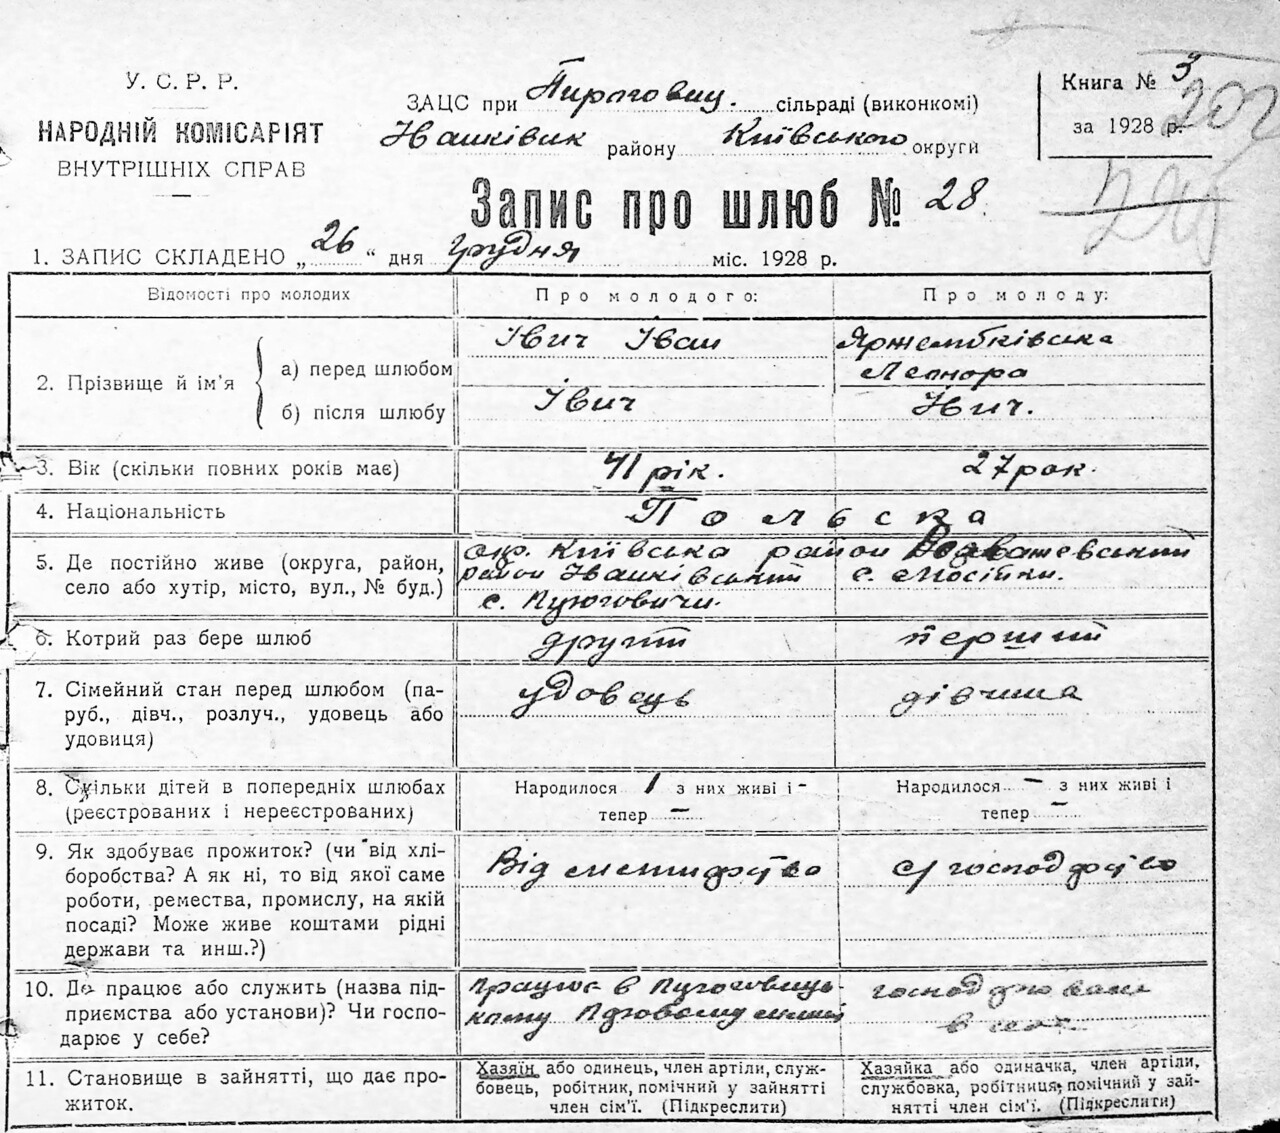 У. С. Р. Р.
НАРОДНІЙ КОМІСАРІЯТ
ВНУТРІШНІХ СПРАВ
ЗАЦС при Пироговиц. сільраді (виконкомі)
Іванківськ району Київського округи
Книга № 3
за 1928 р.
202
Запис про шлюб № 28
1. ЗАПИС СКЛАДЕНО „26“ дня грудня міс. 1928 р.
Відомості про молодих
Про молодого:
Про молоду:
2. Прізвище й ім'я
а) перед шлюбом
Івич Іван
Яржембківська
Леонора
б) після шлюбу
Івич
Івич.
3. Вік (скільки повних років має)
41 рік.
27 рок.
4. Національність
Польска
5. Де постійно живе (округа, район,
село або хутір, місто, вул., № буд.)
окр. Київська район
район Іванківський
с.
с. Мосійки.
6. Котрий раз бере шлюб
другий
перший
7. Сімейний стан перед шлюбом (па-
руб., дівч., розлуч., удовець або
удовиця)
удовець
дівчина
8. Скільки дітей в попередніх шлюбах
(реєстрованих і нереєстрованих)
Народилося 1 з них живі і -
тепер -
Народилося - з них живі і
тепер -
9. Як здобуває прожиток? (чи від хлі-
боробства? А як ні, то від якої саме
роботи, ремества, промислу, на якій
посаді? Може живе коштами рідні
держави та инш.?)
Від
с/господарство
10. Де працює або служить (назва під-
приємства або установи)? Чи госпо-
дарює у себе?
працює в
кому
в
11. Становище в зайнятті, що дає про-
житок.
Хазяїн або одинець, член артіли, служ-
бовець, робітник, помічний у зайнятті
член сім'ї. (Підкреслити)
Хазяйка або одиначка, член артіли,
службовка, робітниця, помічний у зай-
нятті член сім'ї. (Підкреслити)